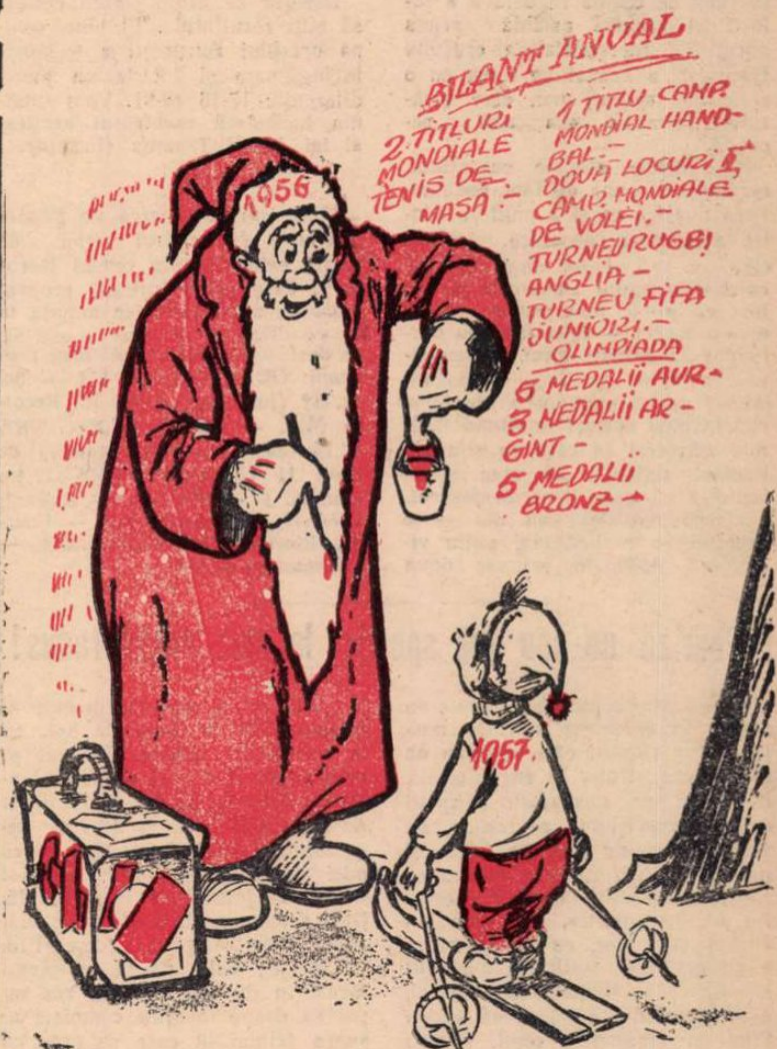 BILANT ANUAL
2 TITLURI
MONDIALE
TENIS DE
MASĂ.-
1 TITLU CAMP.
MONDIAL HAND-
BAL.-
DOUĂ LOCURI II
CAMP. MONDIALE
DE VOLEI.-
TURNEU RUGBI
ANGLIA-
TURNEU FIFA
JUNIORI.-
OLIMPIADA
5 MEDALII AUR-
3 MEDALII AR-
GINT-
5 MEDALII
BRONZ-
1956
1957.